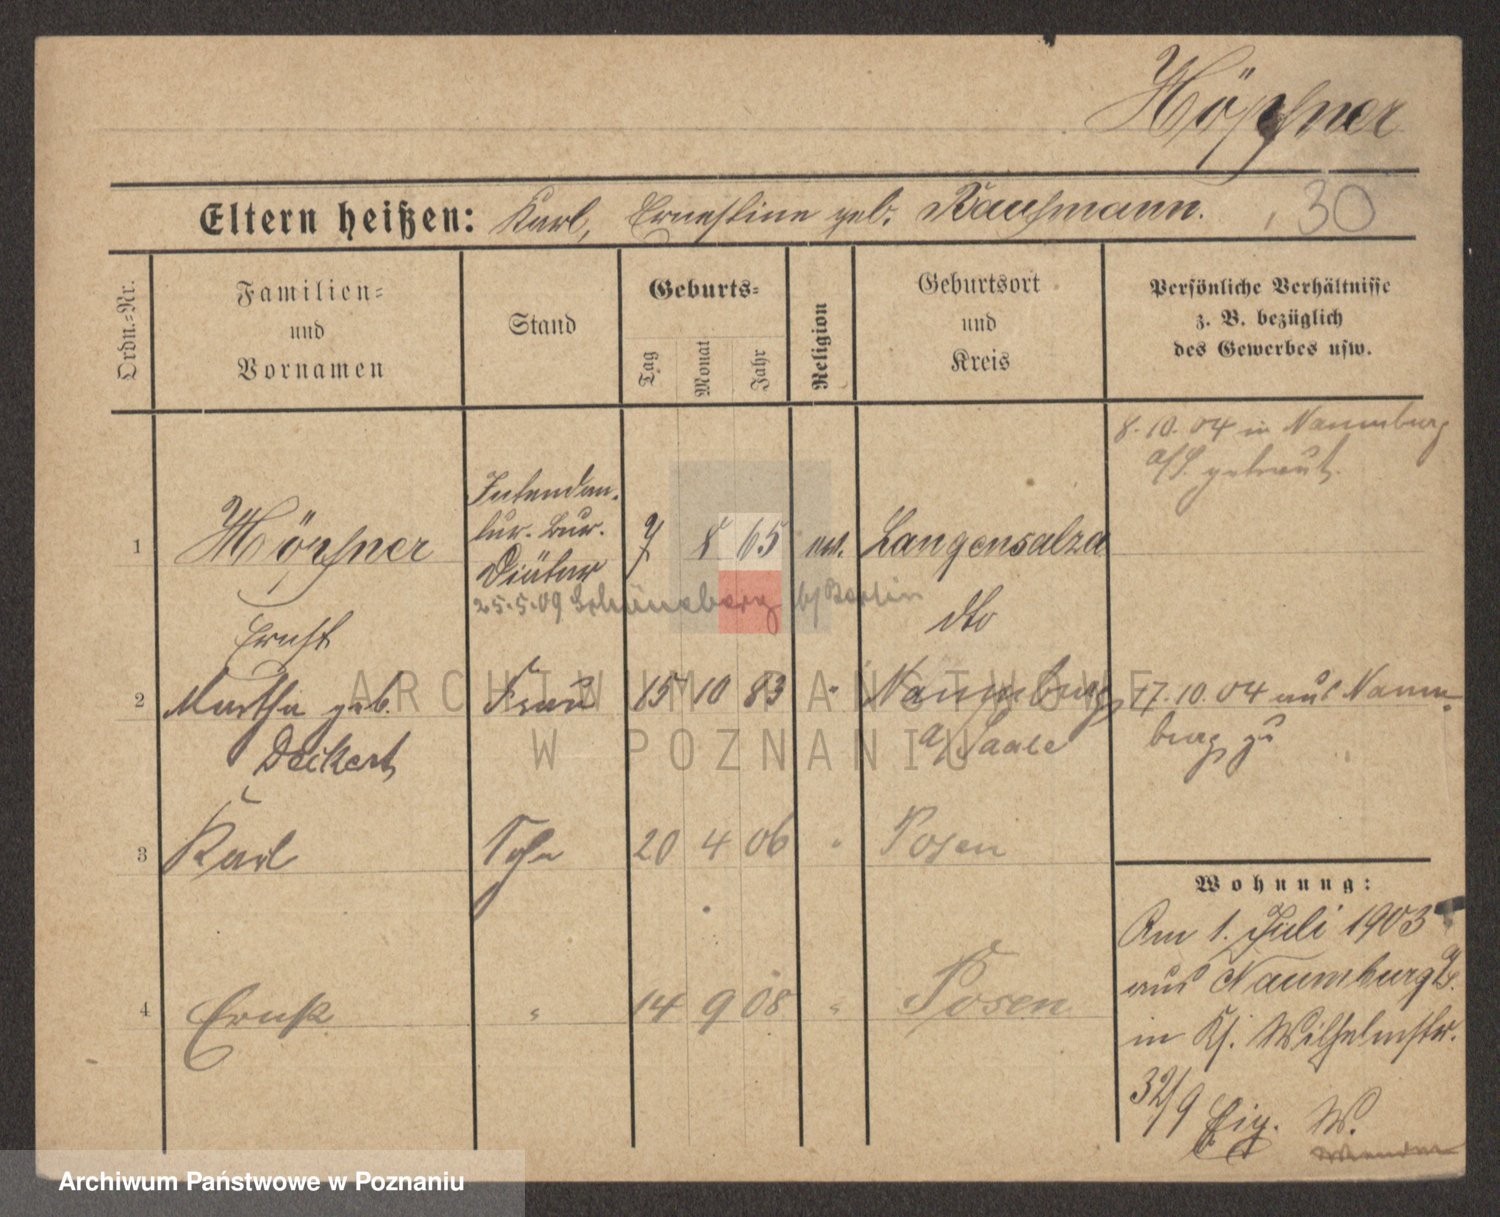 Höpfner
Eltern heißen: Karl, Ernestine geb. Kaufmann.
30
Ordn.-Nr.
Familien-
und
Vornamen
Stand
Geburts-
Tag
Monat
Jahr
Religion
Geburtsort
und
Kreis
Persönliche Verhältnisse
z. B. bezüglich
des Gewerbes usw.
8.10.04 in Naumburg
a/S. getraut.
1 Höpfner Intendan-
tur. Bur.
Diätar
7 8 65 ev. Langensalza
25.5.09 Schöneberg b/Berlin
Ernst
dto
2 Martha geb. Frau 15 10 83 " Naumburg 17.10.04 aus Naum-
Deckert
a/Saale
burg zu
3 Karl Sohn 20 4 06 " Posen
4 Ernst " 14 9 08 " Posen
Wohnung:
Am 1. Juli 1903
aus Naumburg
in Wilhelmstr.
32/9 Eig. W.
ARCHIWUM PAŃSTWOWE
W POZNANIU
Archiwum Państwowe w Poznaniu